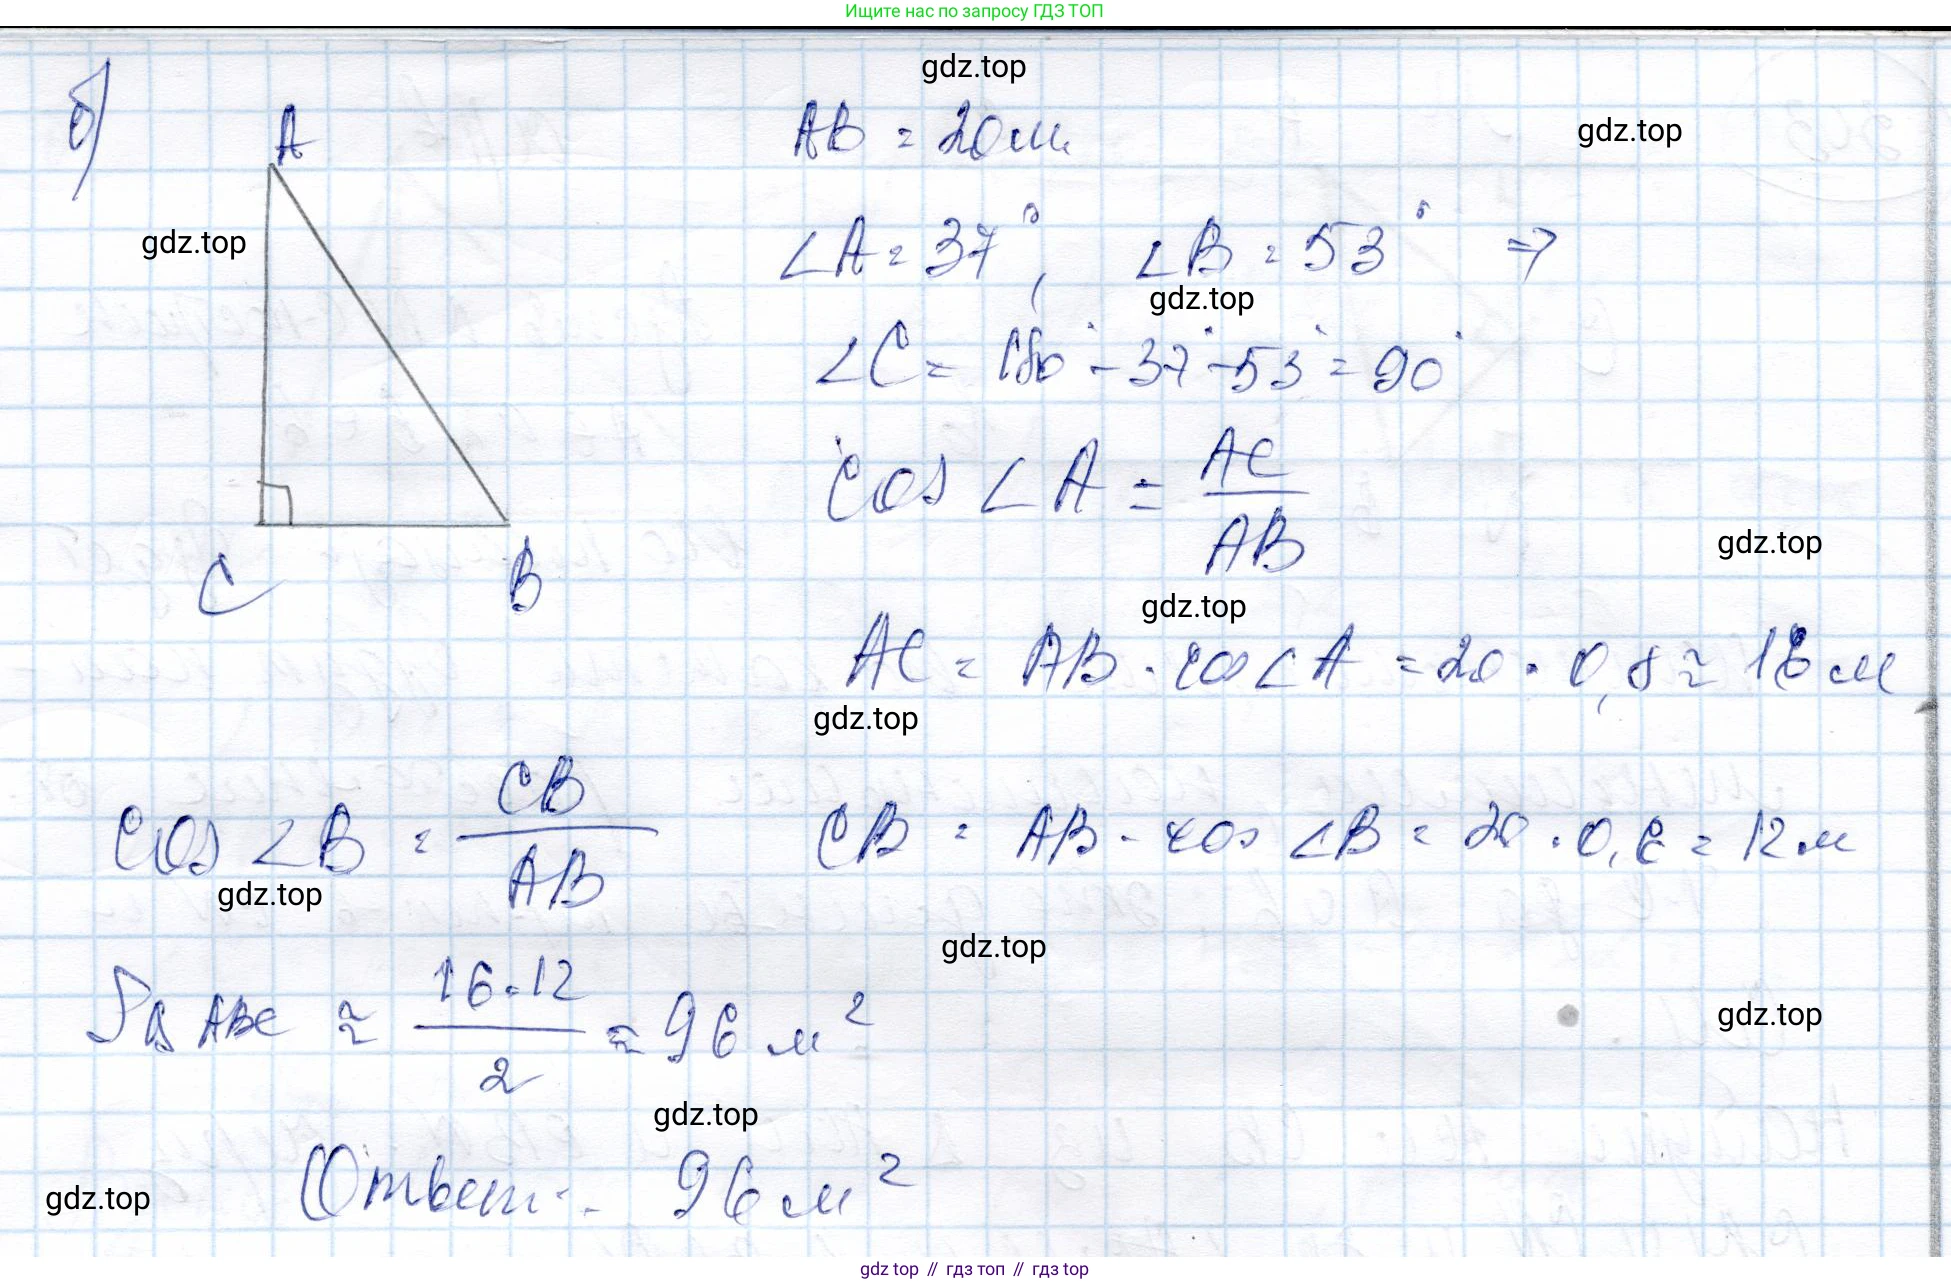 Ищите нас по запросу ГДЗ ТОП
gdz.top
б)
A
AB = 20 м.
gdz.top
gdz.top
∠A = 37°, ∠B = 53° ⇒
gdz.top
∠C = 180° - 37° - 53° = 90°
cos ∠A = AC / AB
gdz.top
C
B
gdz.top
AC = AB · cos ∠A = 20 · 0,8 ≈ 16 м
gdz.top
cos ∠B = CB / AB
CB = AB · cos ∠B = 20 · 0,6 = 12 м
gdz.top
gdz.top
S△ABC ≈ 16·12 / 2 ≈ 96 м²
gdz.top
gdz.top
Ответ: 96 м²
gdz.top
gdz top // гдз топ // гдз top